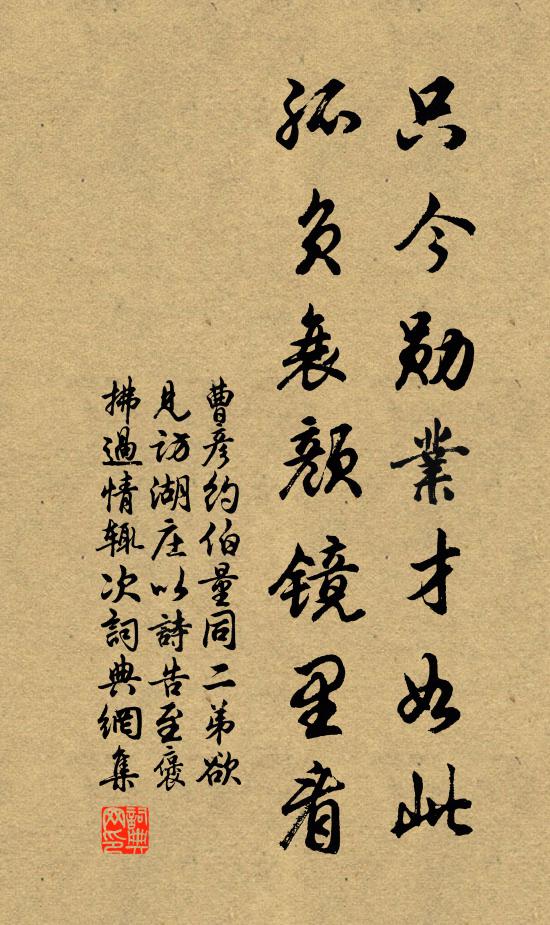 只今勋業才如此
孤负衰颜镜里看
曹彦约伯量同二弟欲
见访湖庄以詩告至褒
拂過情辄次詞典網集
詞典网印